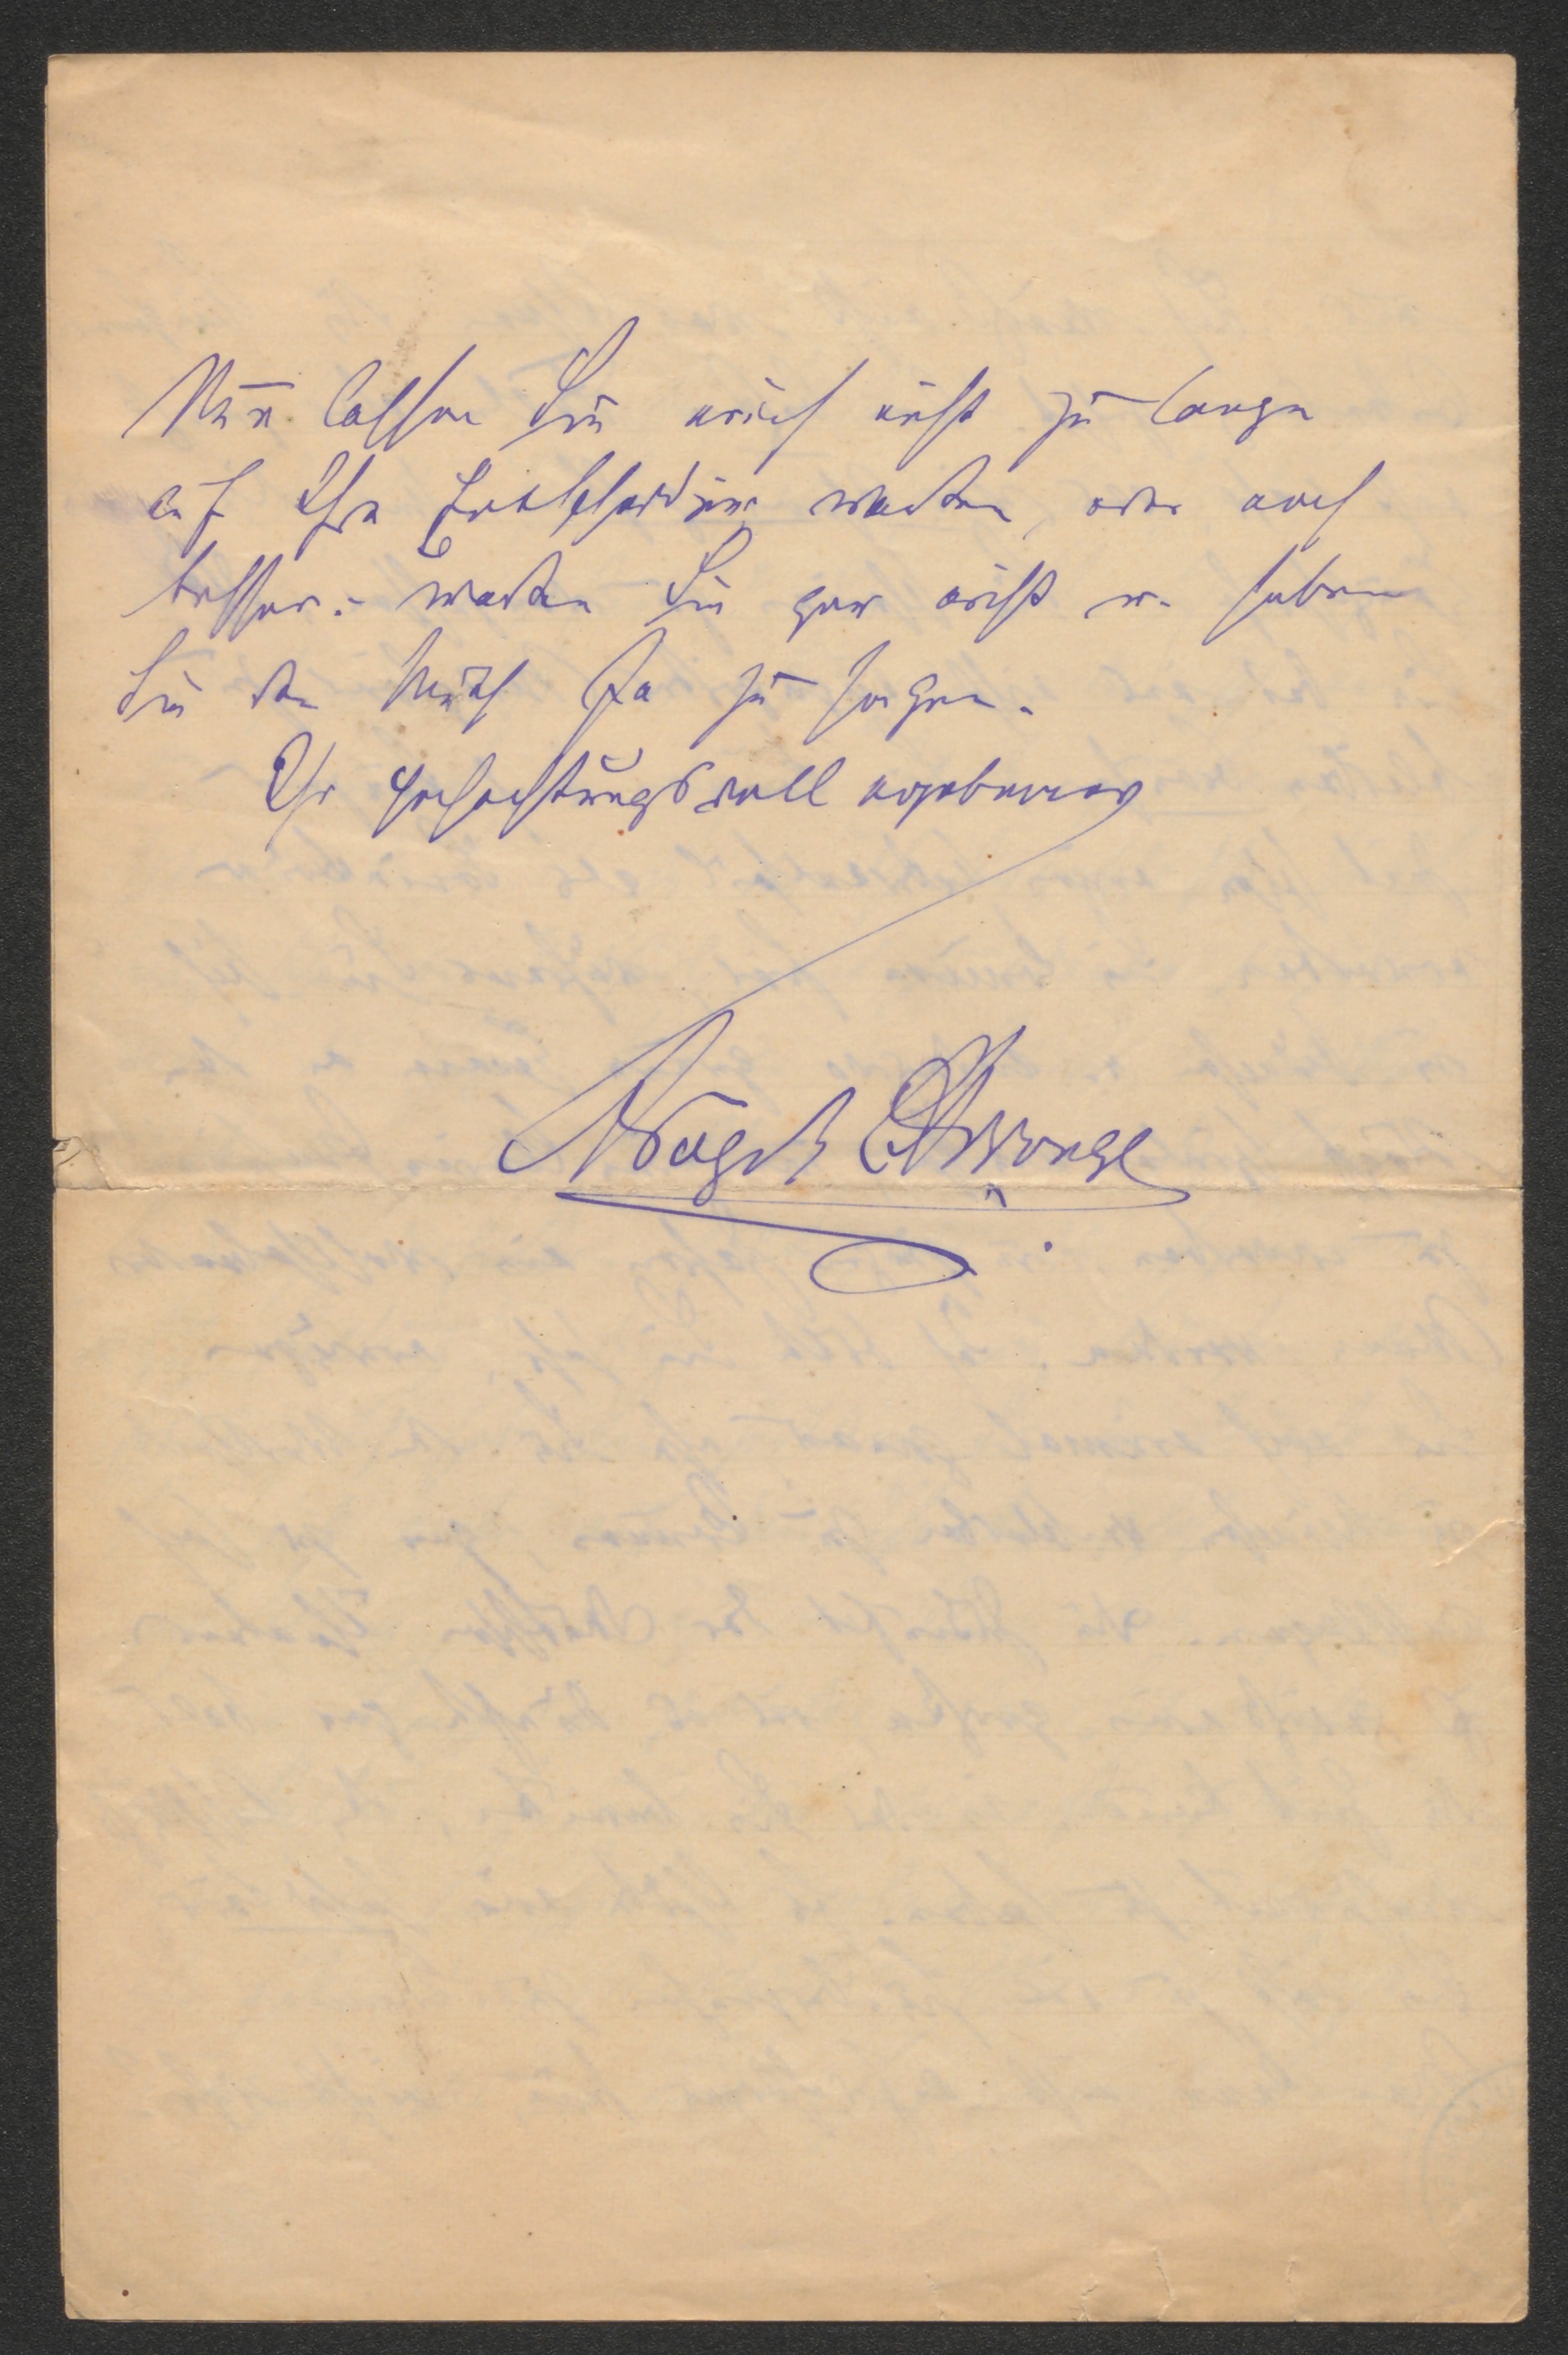 Nun lassen Sie mich nicht zu lange
auf Ihre Entscheidung warten, oder noch
besser: warten Sie gar nicht u. haben
Sie den Muth Ja zu sagen.
Ihr hochachtungsvoll ergebener
August